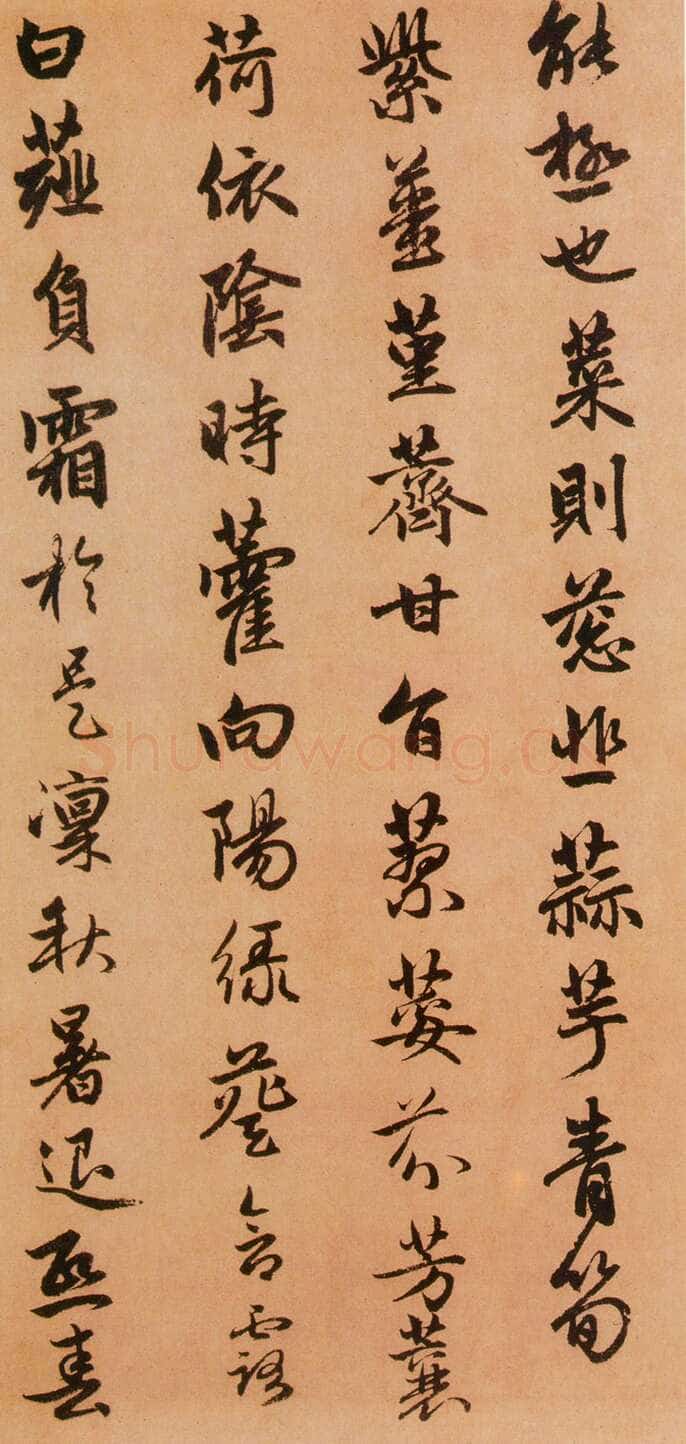 能極也菜則葱韭蒜芋青筍
紫薑堇薺甘旨蓼荽芬芳蘘
荷依陰時藿向陽綠葵含露
白薤負霜於是凜秋暑退熙春
Shufawang.cn